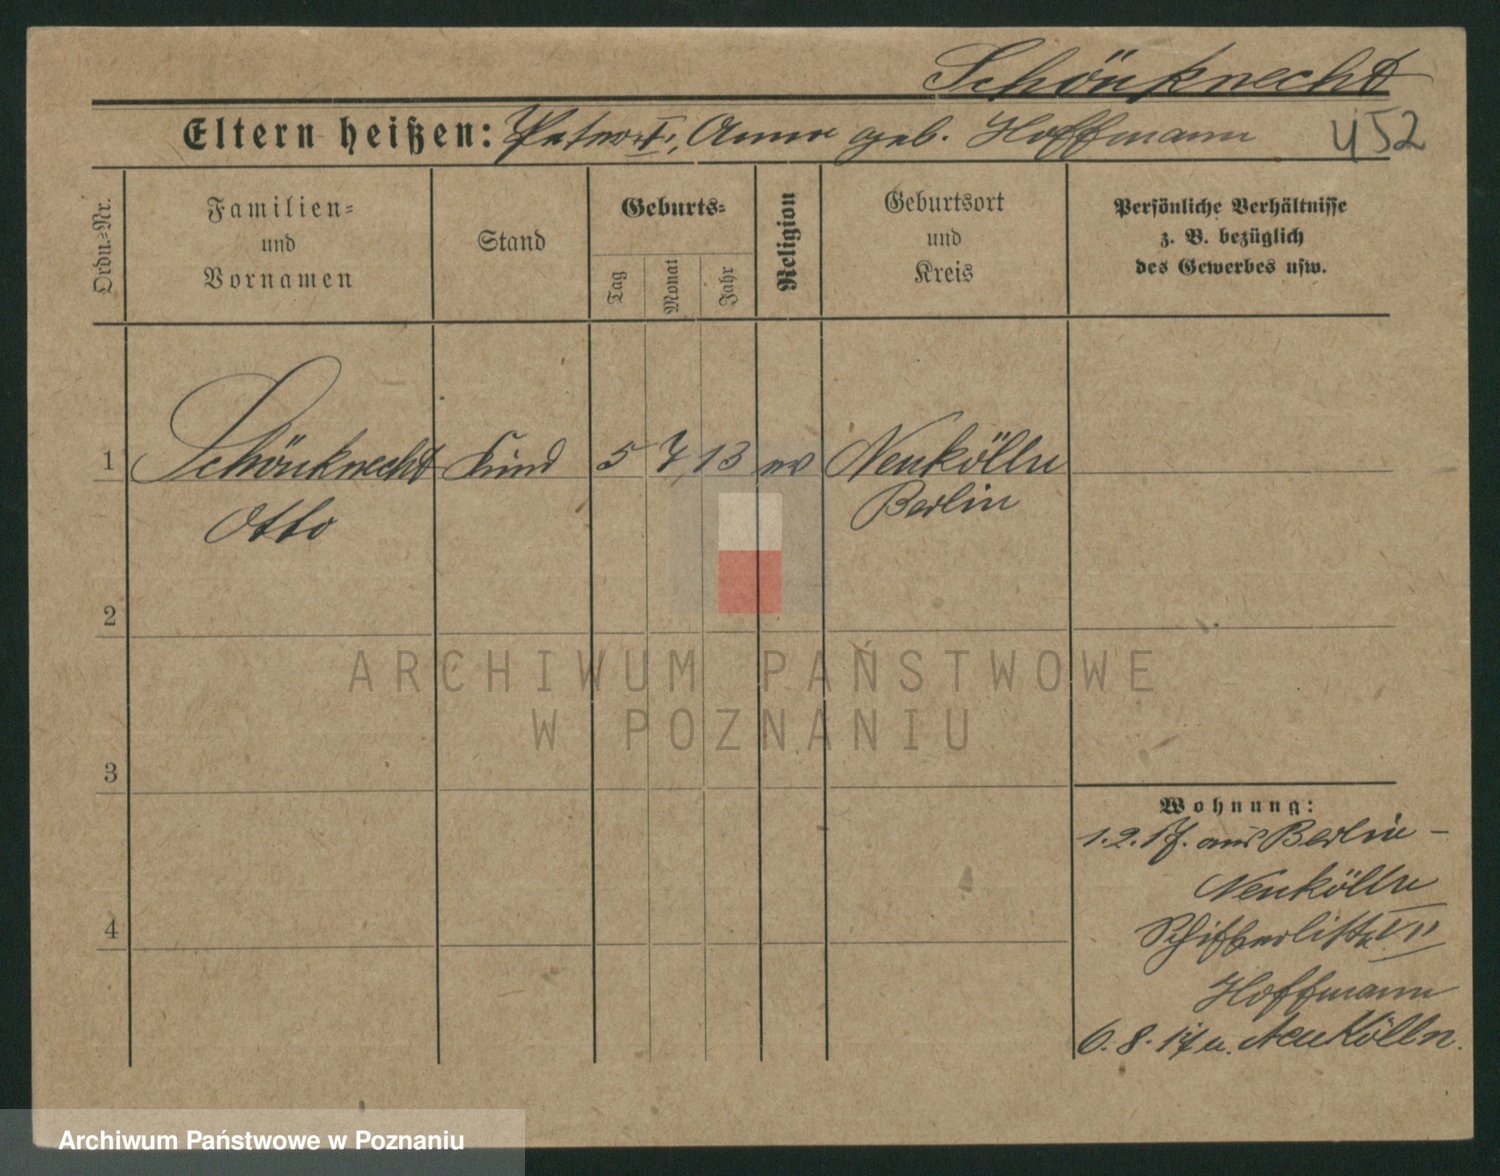 Schönknecht
Eltern heißen: Anna geb. Hoffmann
452
Ordn.-Nr.
Familien-
und
Vornamen
Stand
Geburts-
Tag
Monat
Jahr
Religion
Geburtsort
und
Kreis
Persönliche Verhältnisse
z. B. bezüglich
des Gewerbes usw.
1 Schönknecht Kind 5 7 13 ev Neukölln
Otto Berlin
2
3
4
Wohnung:
1.2.17. aus Berlin-
Neukölln
Hoffmann
6.8.17 n. Neukölln.
ARCHIWUM PAŃSTWOWE
W POZNANIU
Archiwum Państwowe w Poznaniu